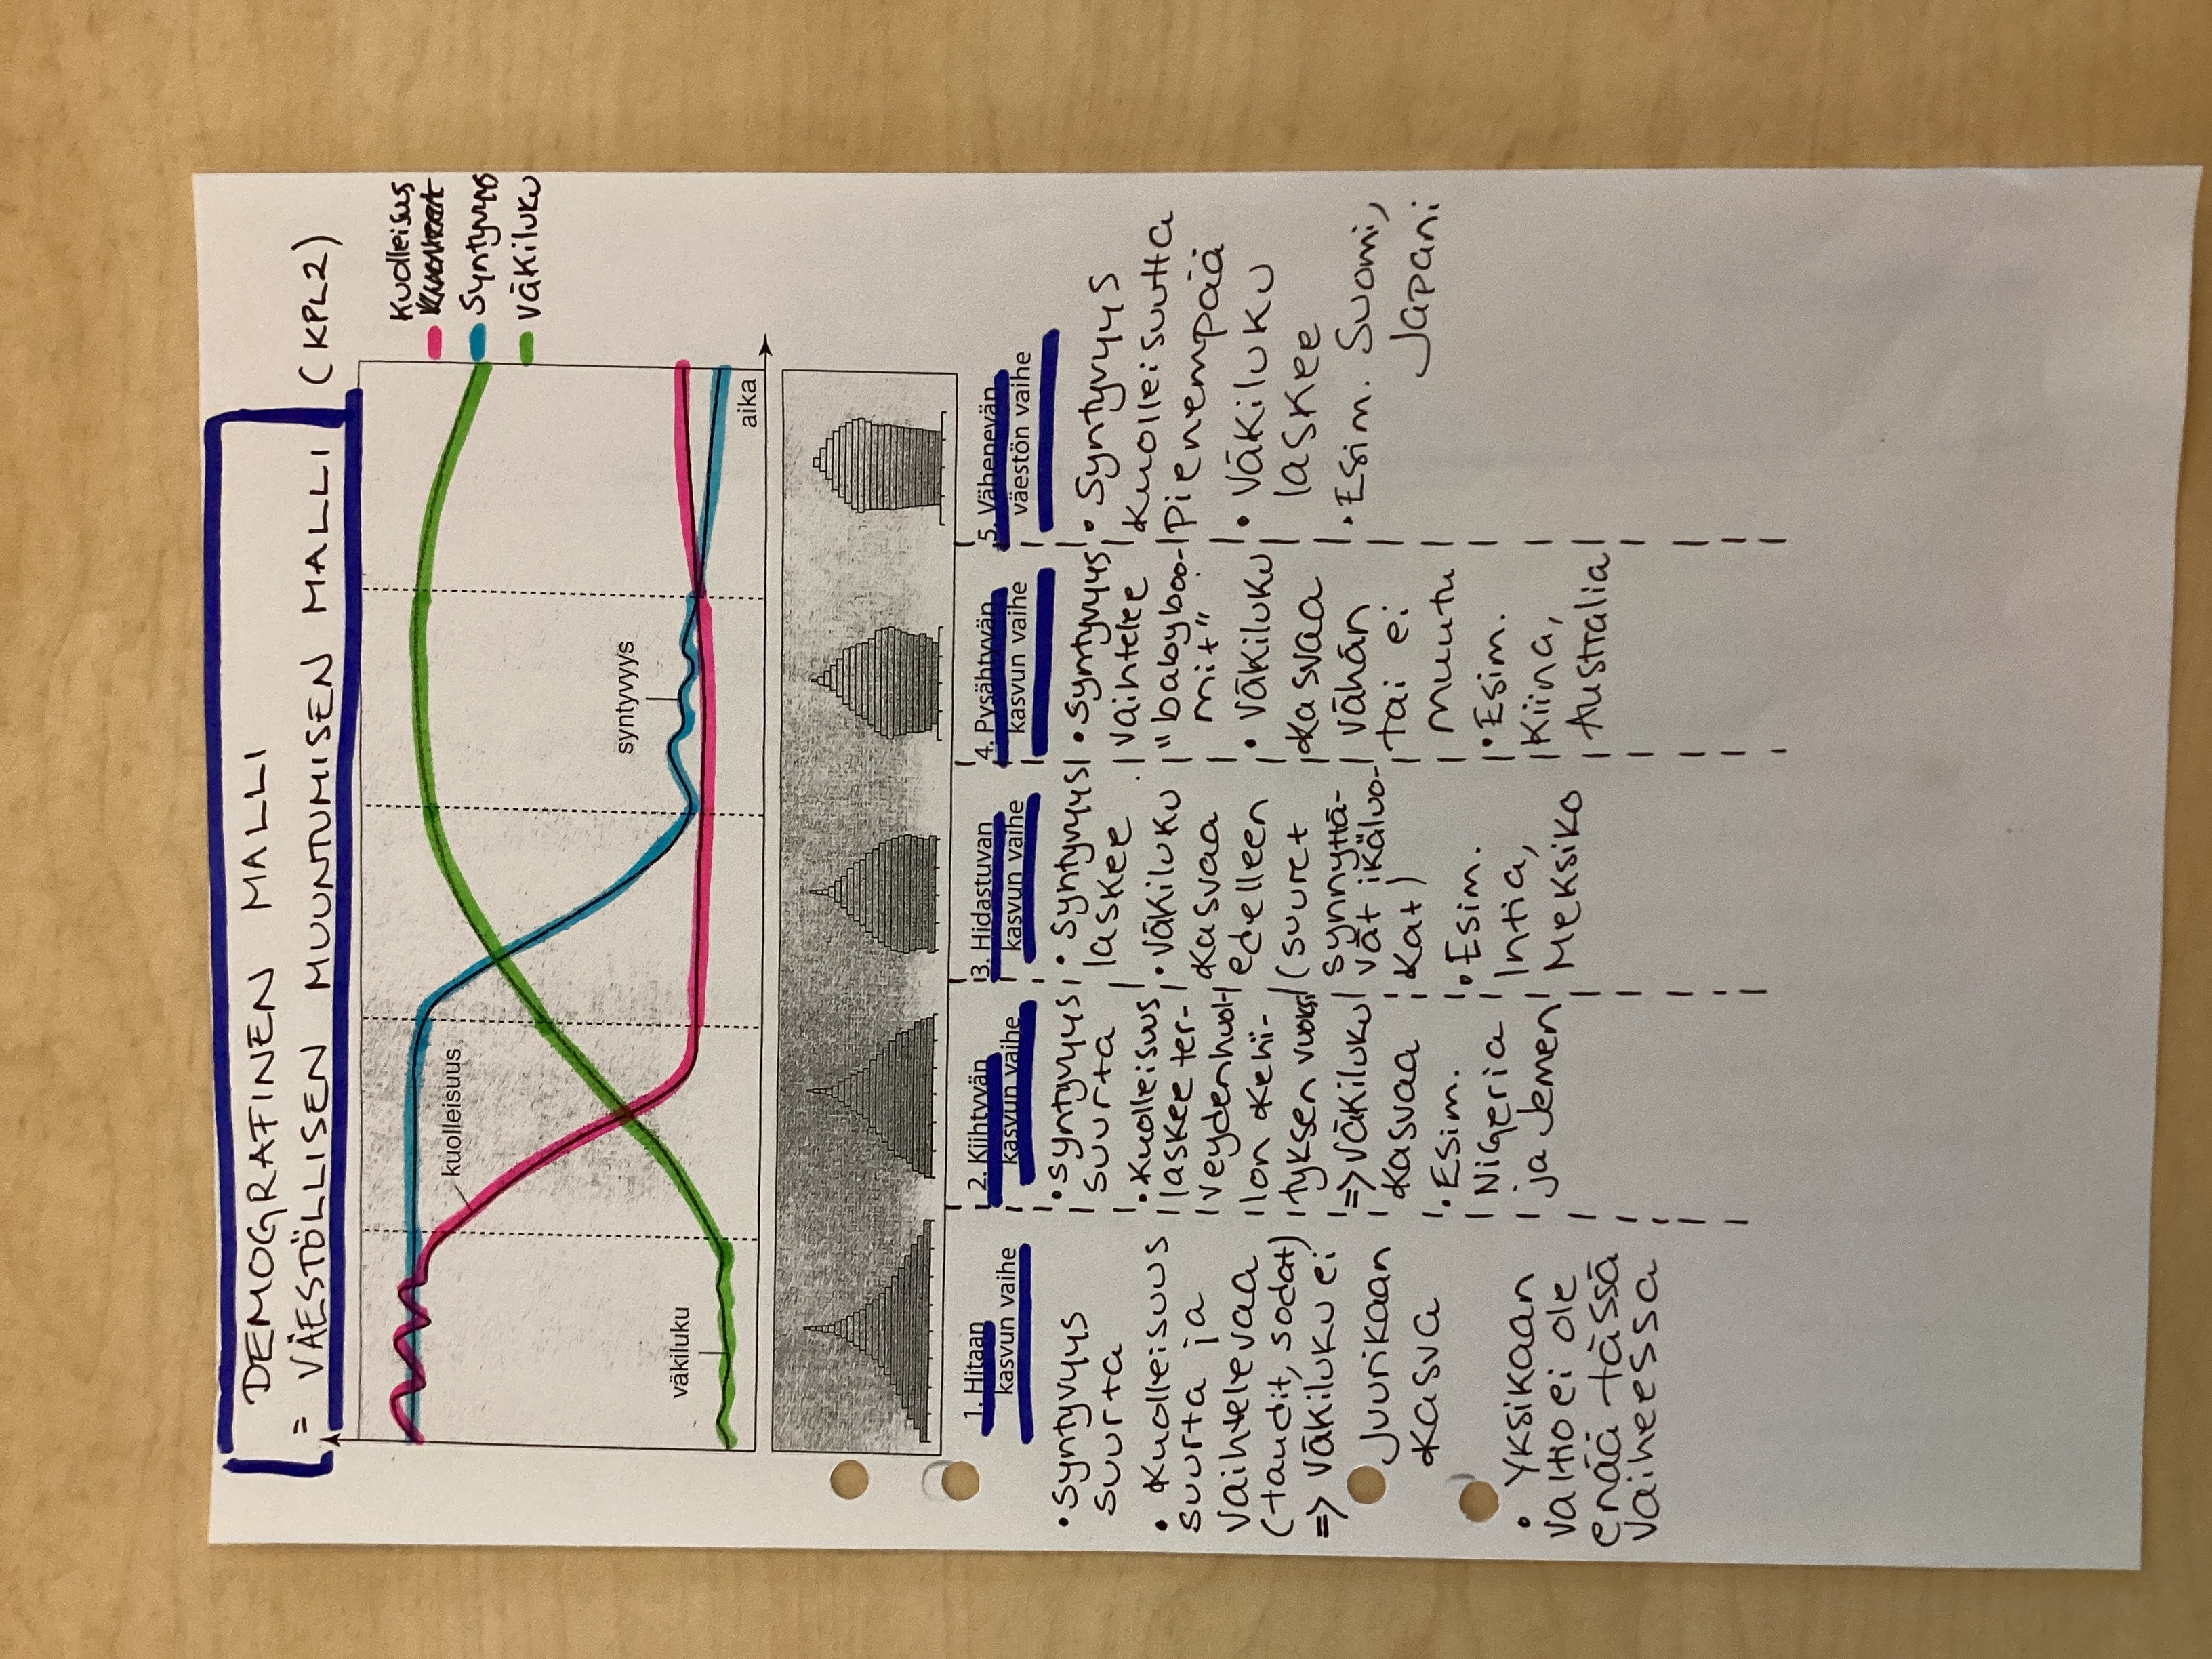 DEMOGRAFINEN MALLI
= VÄESTÖLLISEN MUUNTUMISEN MALLI (KPL2)
Kuolleisus
Syntyvyys
Väkiluku
kuolleisuus
syntyvyys
väkiluku
aika
1. Hitaan
kasvun vaihe
• Syntyvyys
suurta
• Kuolleisuus
suurta ja
vaihtelevaa
(taudit, sodat)
=> väkiluku ei
juurikaan
kasva
• Yksikään
valtio ei ole
enää tässä
vaiheessa
2. Kiihtyvän
kasvun vaihe
• Syntyvyys
suurta
• Kuolleisuus
laskee ter-
veydenhuol-
lon kehi-
tyksen vuoksi
=> väkiluku
kasvaa
• Esim.
Nigeria
ja Jemen
3. Hidastuvan
kasvun vaihe
• Syntyvyys
laskee
• Väkiluku
kasvaa
edelleen
(suuret
synnyttä-
vät ikäluo-
kat)
• Esim.
Intia,
Meksiko
4. Pysähtyvän
kasvun vaihe
• Syntyvyys
vaihtelee
"babyboo-
mit"
• Väkiluku
kasvaa
vähän
tai ei
muutu
• Esim.
Kiina,
Australia
5. Vähenevän
väestön vaihe
• Syntyvyys
kuolleisuutta
pienempää
• Väkiluku
laskee
• Esim. Suomi,
Japani